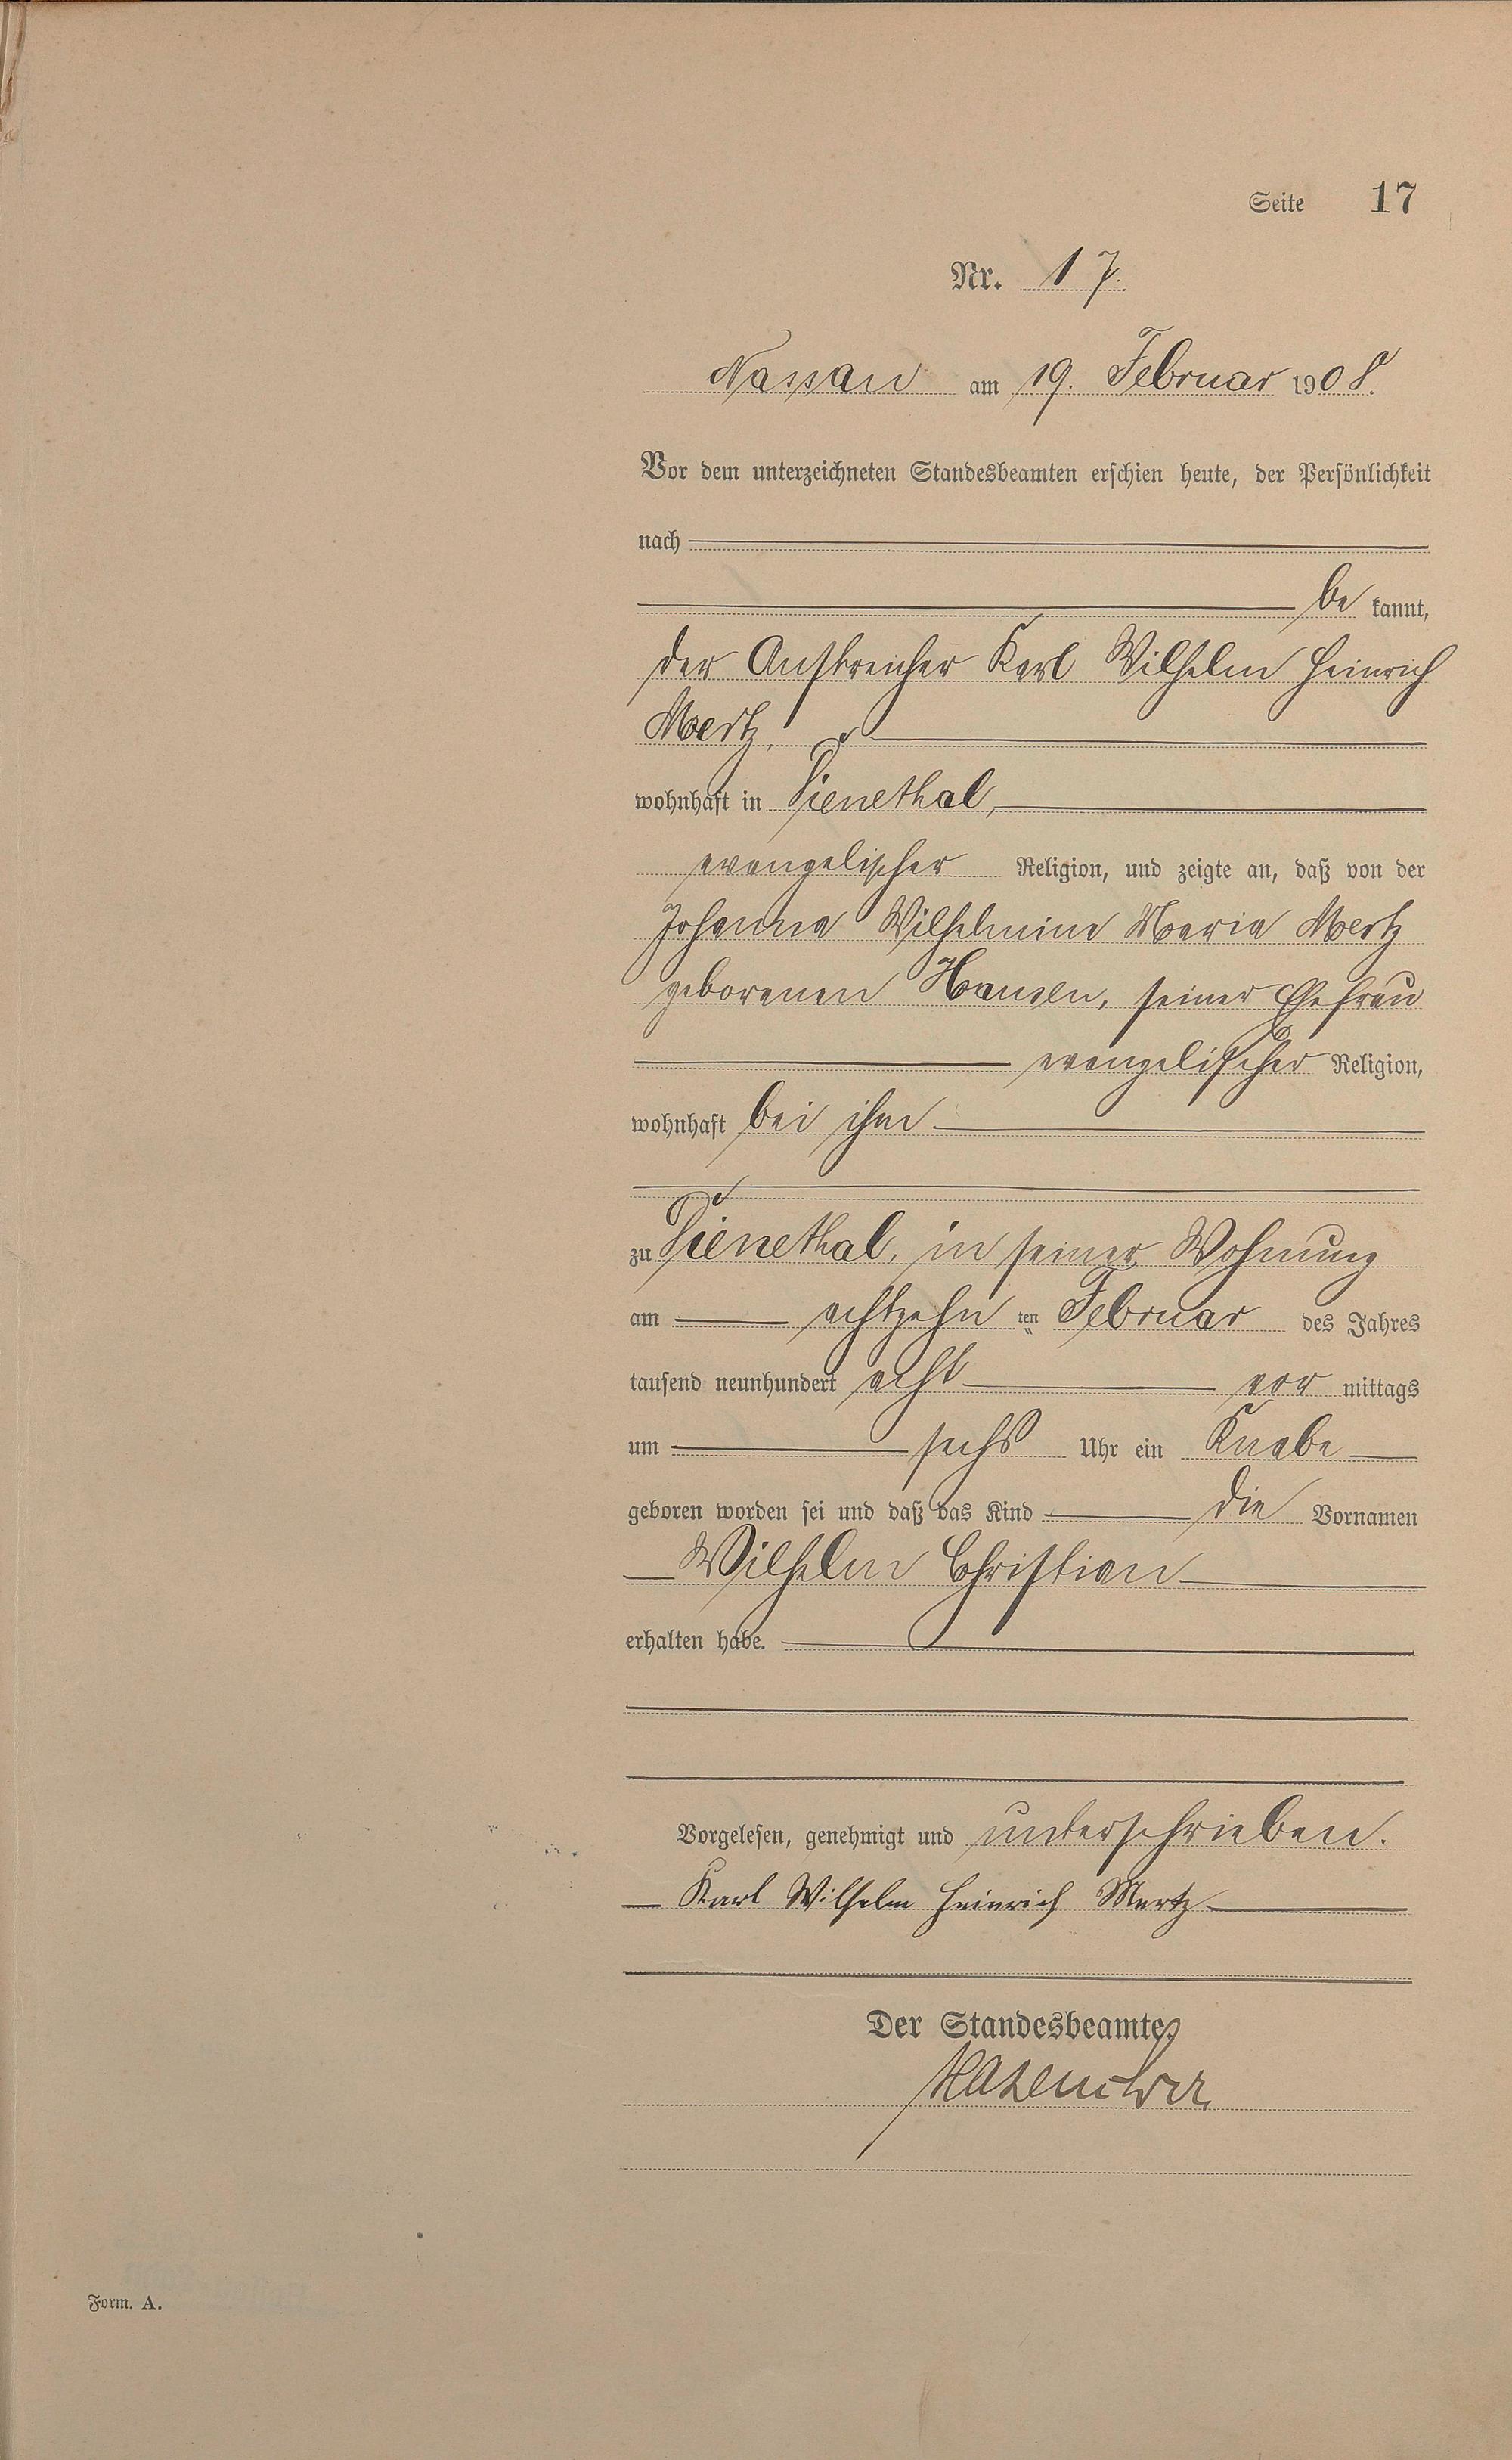 Seite 17
Nr. 17.
Nassau am 19. Februar 1908.
Vor dem unterzeichneten Standesbeamten erschien heute, der Persönlichkeit
nach
be kannt,
der Anstreicher Karl Wilhelm Heinrich
Mertz,
wohnhaft in Dienethal,
evangelischer Religion, und zeigte an, daß von der
Johanna Wilhelmine Maria Mertz
geborenen Hansen, seiner Ehefrau
evangelischer Religion,
wohnhaft bei ihm
zu Dienethal, in seiner Wohnung
am achtzehn ten Februar des Jahres
tausend neunhundert acht vor mittags
um sechs Uhr ein Knabe
geboren worden sei und daß das Kind die Vornamen
Wilhelm Christian
erhalten habe.
Vorgelesen, genehmigt und unterschrieben.
Karl Wilhelm Heinrich Mertz
Der Standesbeamte.
Form. A.